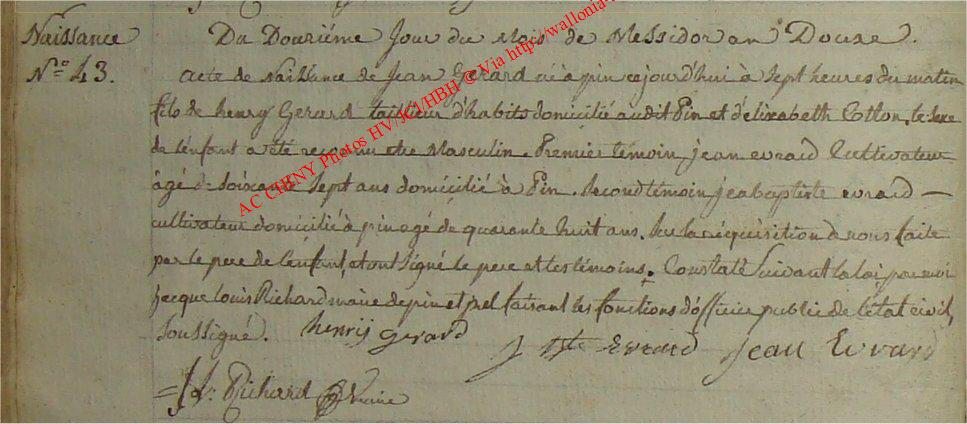 Naissance
N.º 43.
Du Douzième Jour du Mois de Messidor an Douze.
acte de Naissance de Jean Gerard né à pin cejourd'hui à Sept heures du matin
fils de henry Gerard tailleur d'habits domicilié audit Pin et d'élizabeth Collon, le sexe
de l'enfant a été reconnu être Masculin. Premier témoin, jean evrard Cultivateur
âgé de Soixante Sept ans domicilié à Pin. Second témoin, jeabaptiste evrard —
cultivateur domicilié à pin agé de quarante huit ans. Sur la réquisition à nous faite
par le pere de l'enfant, et ont signé le pere et les témoins. Constaté Suivant la loi par moi
jacque Louis Richard maire de pin et faisant les fonctions d'officier public de l'état civil,
Soussigné. henry gerard
J Bte Evrard Jean Evrard
Richard Maire
AC CHINY Photos HV/JCI/HBH © Via http://wallonia